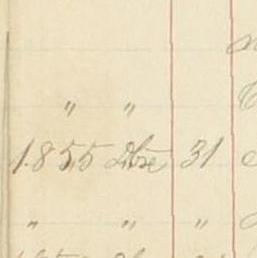 " "
1855 Dbre 31
" " "